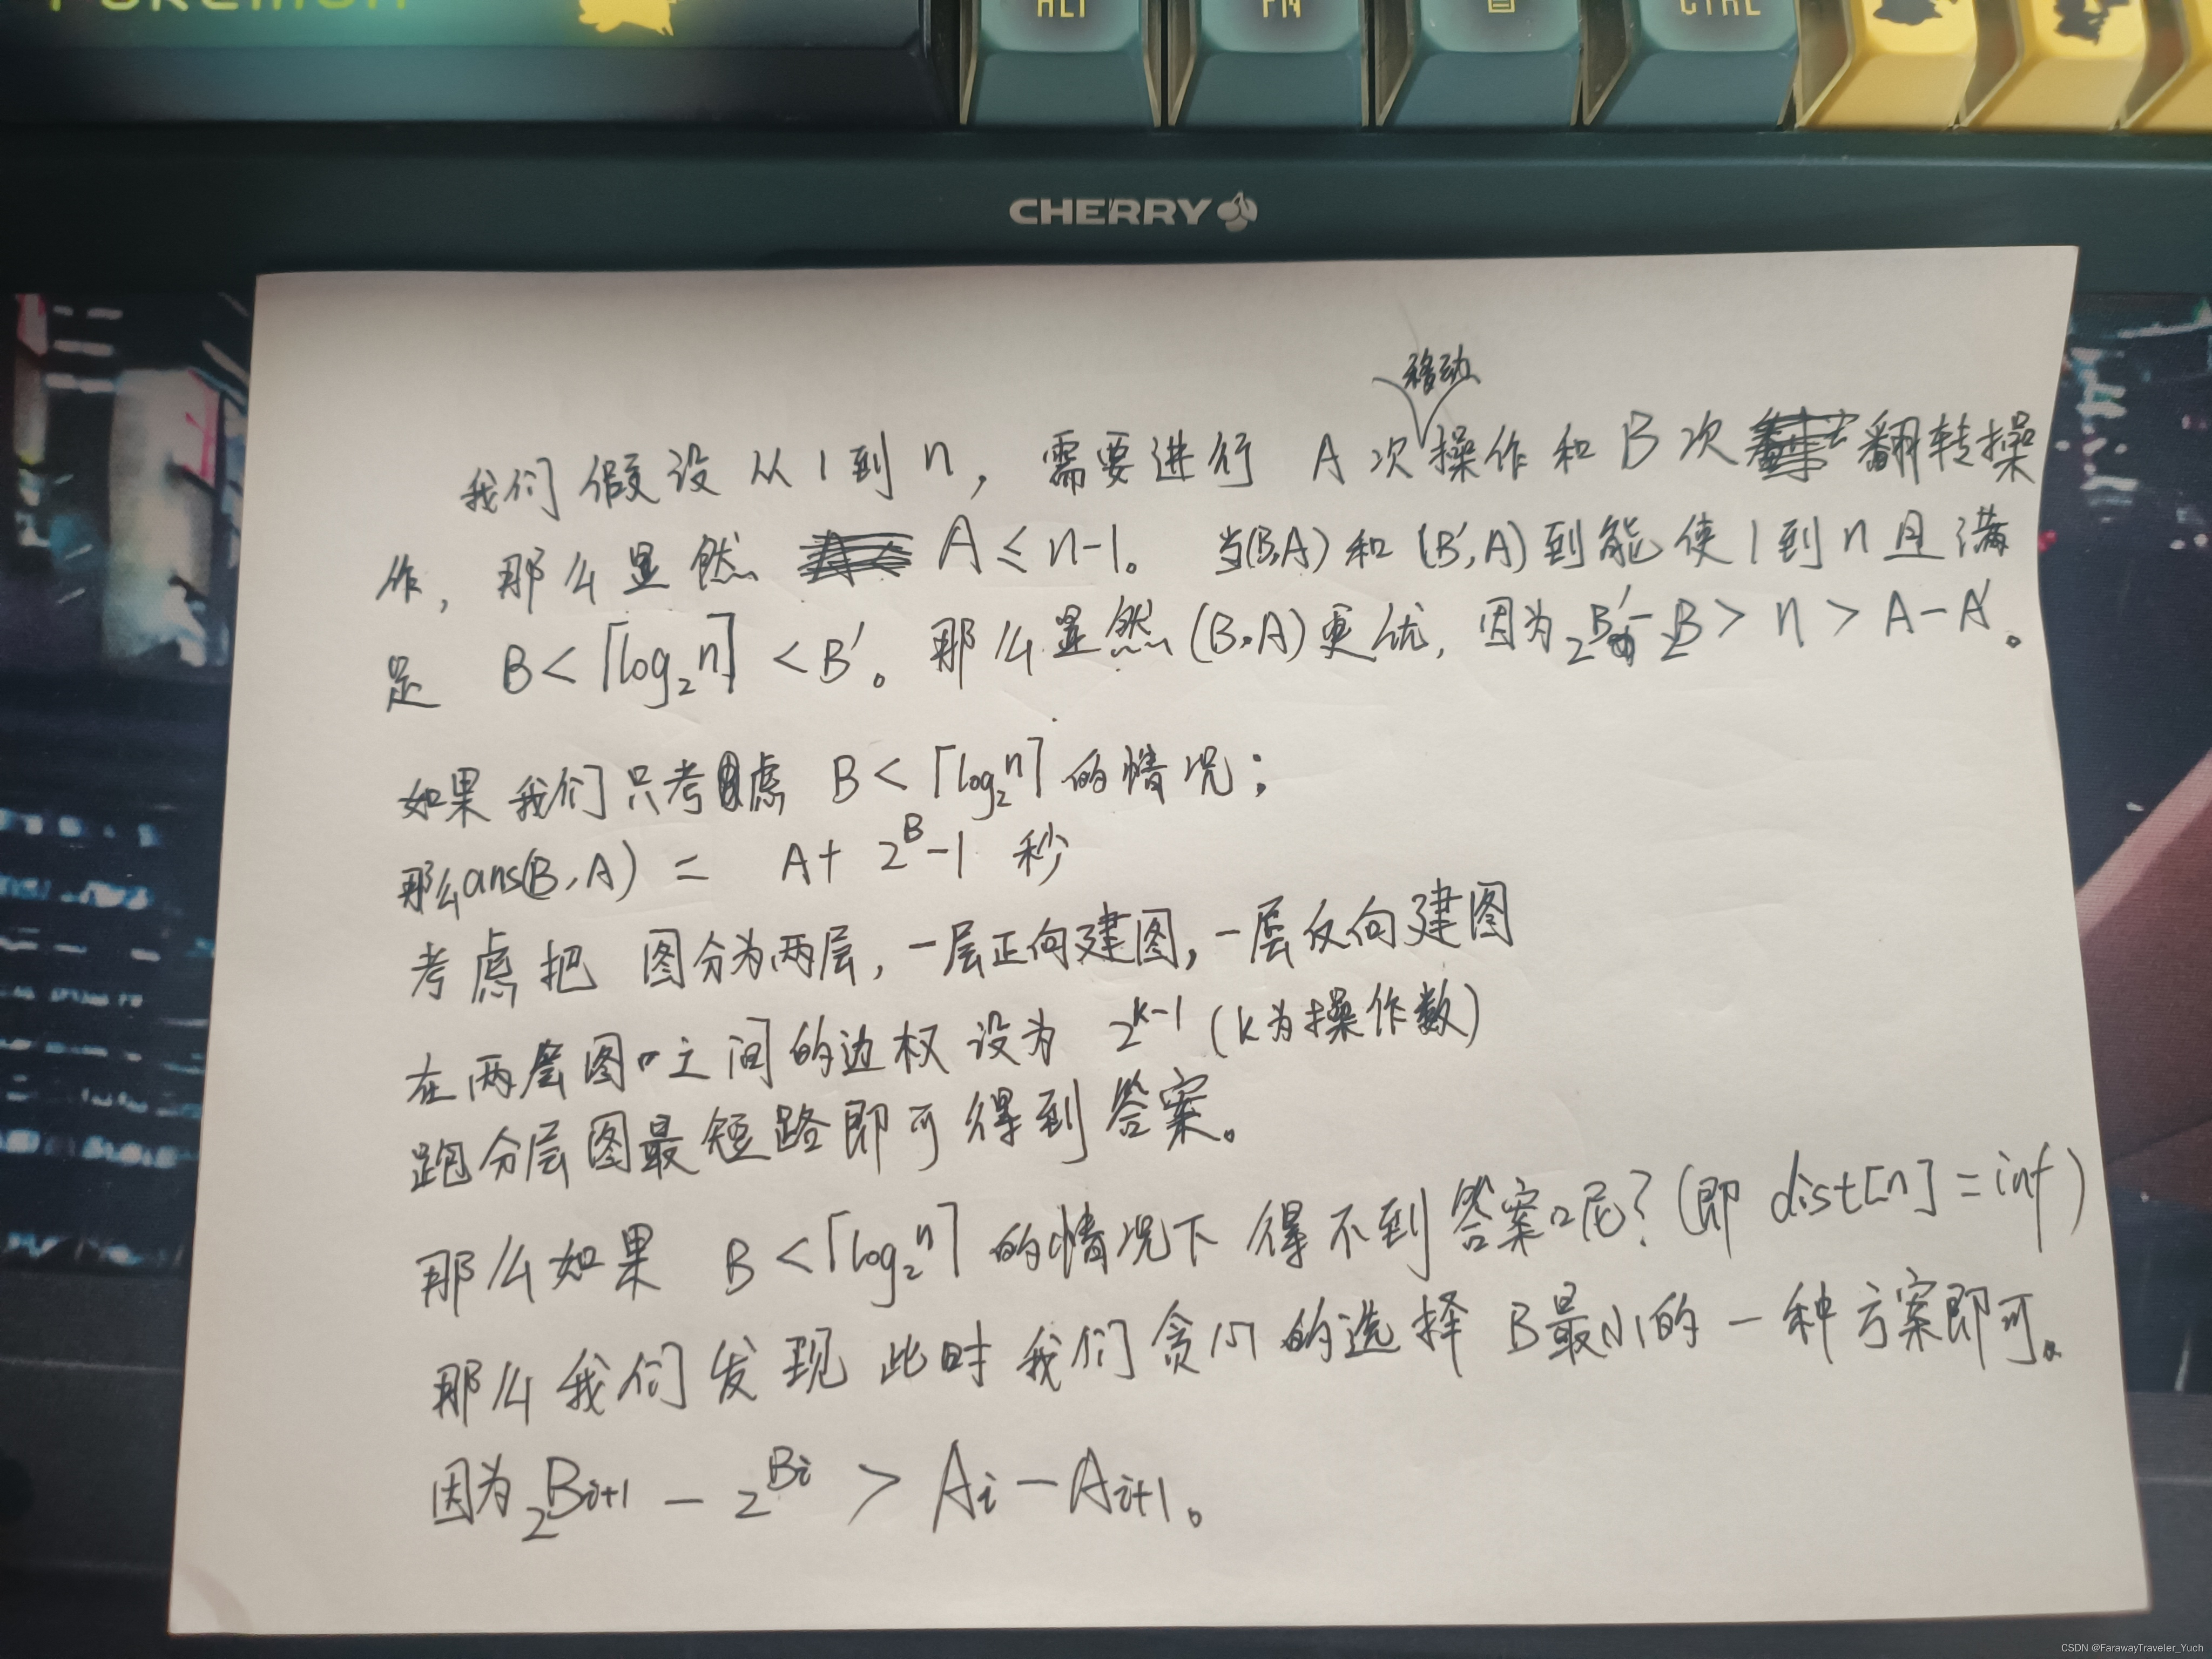 POKEMON
ALT
FN
CTRL
CHERRY
移动
我们假设从1到n，需要进行 A次操作和B次翻转操
作，那么显然 A≤n-1。当(B,A)和(B′,A)到能使1到n且满
足 B<⌈log₂n⌉<B′。那么显然(B,A)更优，因为2^B′-2^B>n>A-A′。
如果我们只考虑 B<⌈log₂n⌉的情况；
那么ans(B,A) = A+2^B-1 秒
考虑把图分为两层，一层正向建图，一层反向建图
在两层图之间的边权设为 2^k-1 (k为操作数)
跑分层图最短路即可得到答案。
那么如果 B<⌈log₂n⌉的情况下得不到答案呢？(即 dist[n]=inf)
那么我们发现此时我们贪心的选择 B最小的一种方案即可。
因为2^Bi+1 - 2^Bi > Ai-Ai+1。
CSDN @FarawayTraveler_Yuch